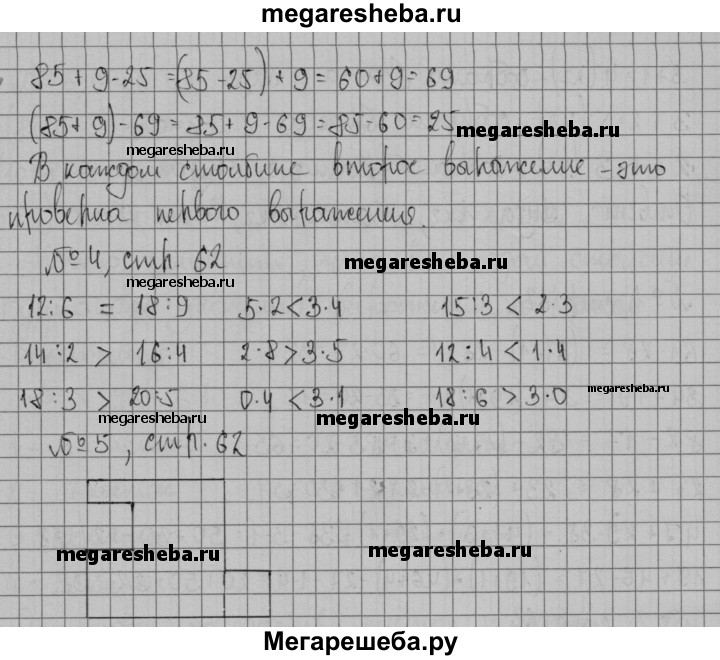 megaresheba.ru
85 + 9 - 25 = (85 - 25) + 9 = 60 + 9 = 69
(85 + 9) - 69 = 85 + 9 - 69 = 85 - 60 = 25
megaresheba.ru
megaresheba.ru
В каждом столбике второе выражение - это
проверка первого выражения.
№ 4, стр. 62
megaresheba.ru
megaresheba.ru
12 : 6 = 18 : 9 5 · 2 < 3 · 4 15 : 3 < 2 · 3
14 : 2 > 16 : 4 2 · 8 > 3 · 5 12 : 4 < 1 · 4
18 : 3 > 20 : 5 0 · 4 < 3 · 1 18 : 6 > 3 · 0
megaresheba.ru
megaresheba.ru
megaresheba.ru
№ 5, стр. 62
megaresheba.ru
megaresheba.ru
Мегарешеба.ру